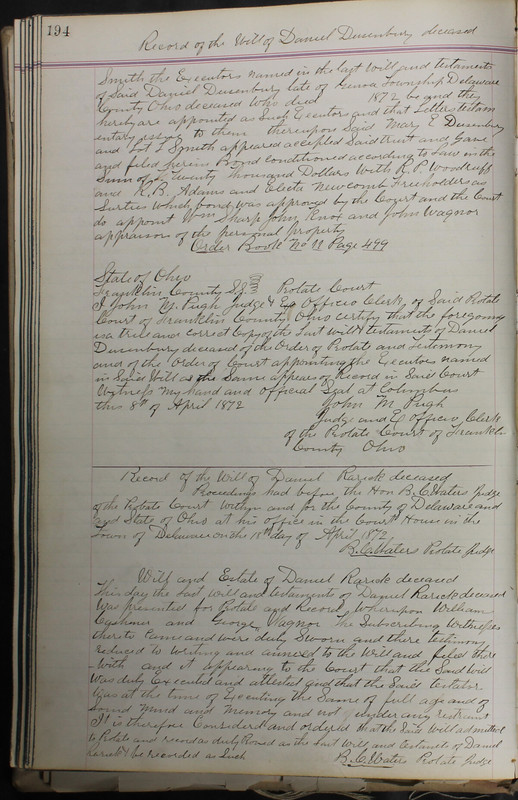 194
Record of the Will of Daniel Dusenbury deceased
Smith the Executors named in the last Will and testaments
of Said Daniel Dusenbury late of Genoa Township Delaware
County Ohio deceased Who died 1872 be and they
hereby are appointed as Such Executors and that Letters testam
entary issue to them thereupon Said Mary E Dusenbury
and Smith appeared accepted Said trust and Gave
and filed herein Bond conditioned according to Law in the
Sum of Twenty thousand Dollars With R. P. Woodruff
and R. B. Adams and Electe Newcomb Freeholders as
Surties Which bond was approved by the Court and the Court
do appoint Wm Sharp John Knox and John Wagnor
appraisors of the personal property
Order Book No 11 Page 499
State of Ohio
Franklin County SS Probate Court
I John M. Pugh Judge & Ex Officio Clerk of Said Probate
Court of Franklin County Ohio certify that the foregoing
is a true and correct Copy of the Last Will & testaments of Daniel
Dusenbury deceased of the Order of Probate and Testimony
and of the Order of Court appointing the Executors named
in Said Will as the Same appears of Record in Said Court
Witness My hand and official Seal at Columbus
this 8th of April 1872 John M. Pugh
Judge and Ex Officio Clerk
of the Probate Court of Franklin
County Ohio
Record of the Will of Daniel Rarick deceased
Proceedings had before the Hon B. C. Waters Judge
of the Probate Court Within and for the County of Delaware and
and State of Ohio at his office in the Court House in the
Town of Delaware on the 18th day of April 1872
B. C. Waters Probate Judge
Will and Estate of Daniel Rarick deceased
This day the Last Will and testaments of Daniel Rarick deceased
Was presented for Probate and Record Whereupon William
Cashner and George Wagnor the Subscribing Witnesses
thereto Came and were duly Sworn and there testimony
reduced to Writing and annexed to the Will and filed there
-with and it appearing to the Court that the Said Will
Was duly Executed and attested and that the Said testator
Was at the time of Executing the Same of full age and of
Sound Mind and Memory and not under any restraint
It is therefore Considered and ordered that the Said Will admitted
to Probate and record as duly Proved as the Last Will and testaments of Daniel
Rarick & be recorded as Such B. C. Waters Probate Judge